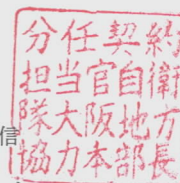 分任契約
担当官自衛
隊大阪地方
信
協力本部長